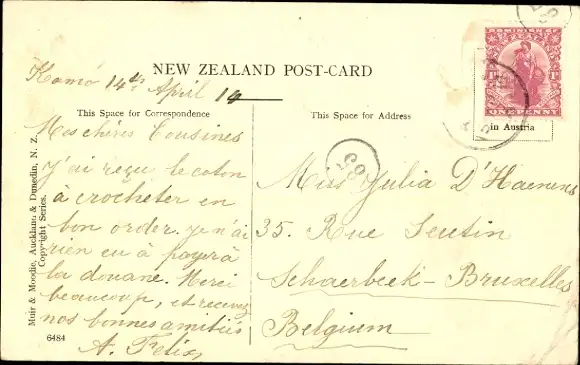 NEW ZEALAND POST-CARD
Kamo 14th April 14
This Space for Correspondence
This Space for Address
in Austria
DOMINION OF
ZEALAND
ONE PENNY
Mes chères Cousines
J'ai reçu le coton
à crocheter en
bon order. Je n'ai
rien eu à payer à
la douane. Merci
beaucoup, et recevez
nos bonnes amitiés
A. Felix
Miss Julia D'Haenens
35. Rue Seutin
Schaerbeek - Bruxelles
Belgium
69
Muir & Moodie, Auckland & Dunedin, N. Z.
Copyright Series.
6484